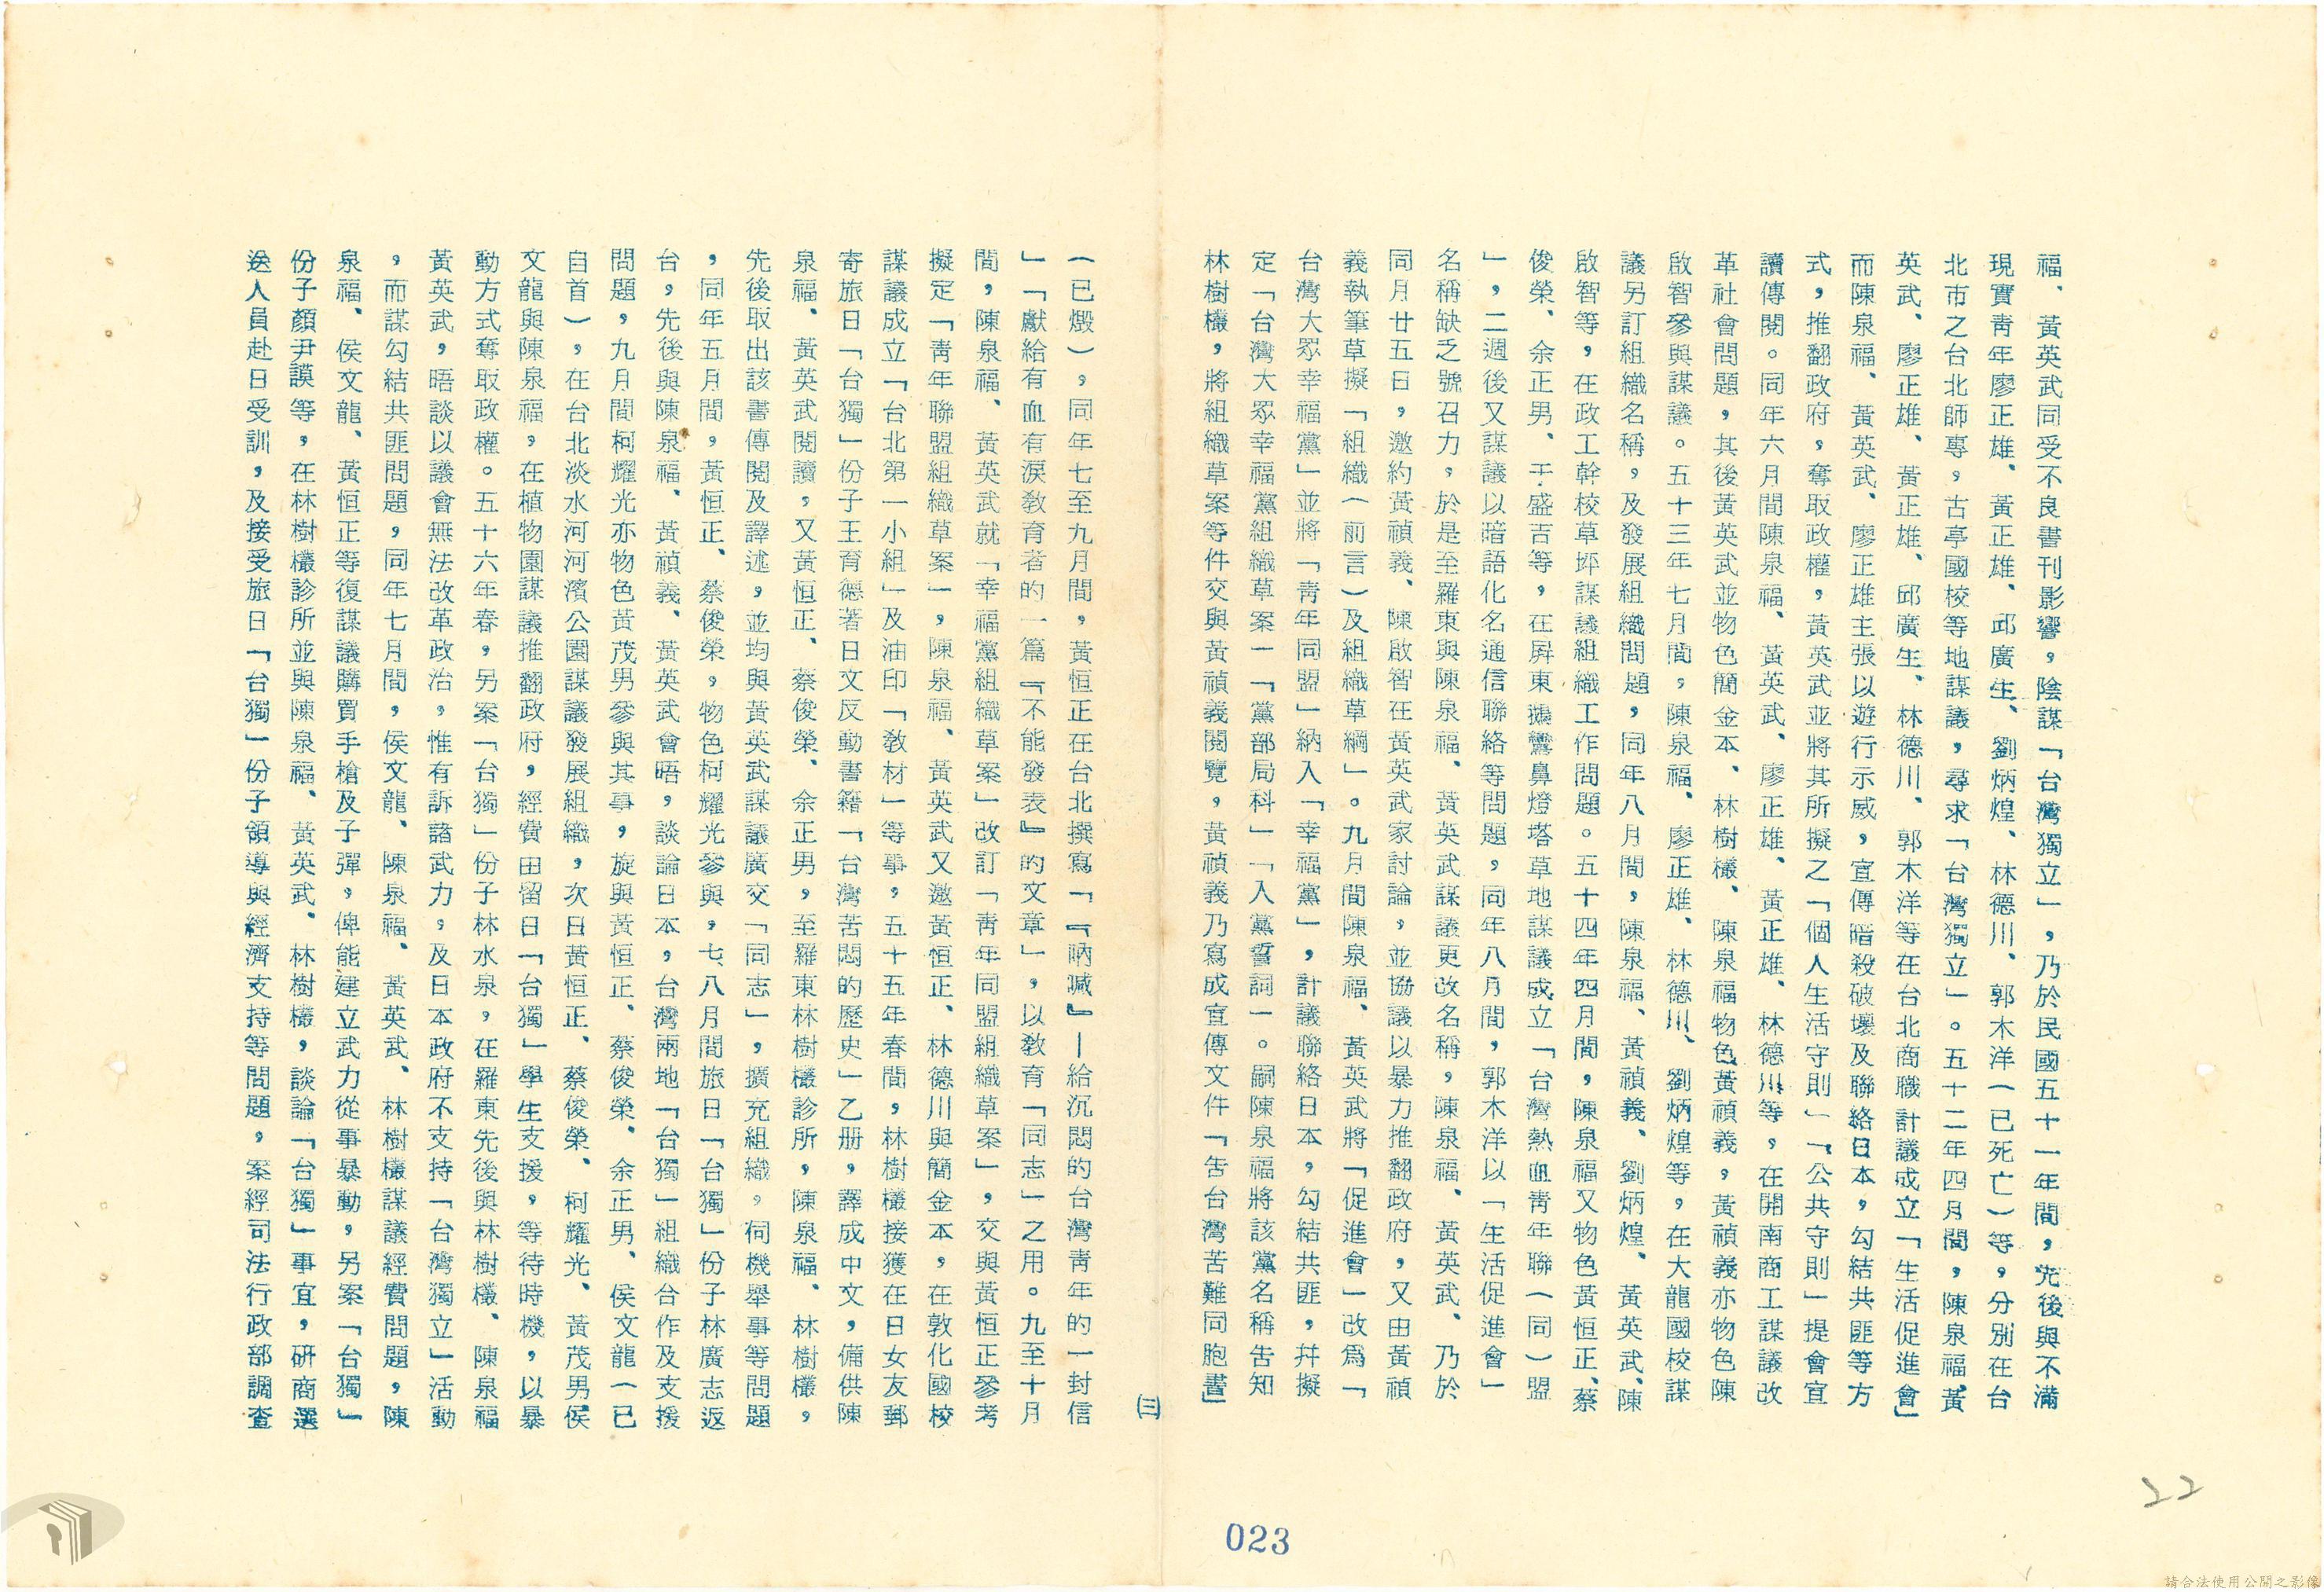 福、黃英武同受不良書刊影響，陰謀「台灣獨立」，乃於民國五十一年間，先後與不滿
現實靑年廖正雄、黃正雄、邱廣生、劉炳煌、林德川、郭木洋（已死亡）等，分別在台
北市之台北師專，古亭國校等地謀議，尋求「台灣獨立」。五十二年四月間，陳泉福、黃
英武、廖正雄、黃正雄、邱廣生、林德川、郭木洋等在台北商職計議成立「生活促進會」
而陳泉福、黃英武、廖正雄主張以遊行示威，宣傳暗殺破壞及聯絡日本，勾結共匪等方
式，推翻政府，奪取政權，黃英武並將其所擬之「個人生活守則」「公共守則」提會宣
讀傳閱。同年六月間陳泉福、黃英武、廖正雄、黃正雄、林德川等，在開南商工謀議改
革社會問題，其後黃英武並物色簡金本、林樹欉、陳泉福物色黃禎義，黃禎義亦物色陳
啟智參與謀議。五十三年七月間，陳泉福、廖正雄、林德川、劉炳煌等，在大龍國校謀
議另訂組織名稱，及發展組織問題，同年八月間，陳泉福、黃禎義、劉炳煌、黃英武、陳
啟智等，在政工幹校草坪謀議組織工作問題。五十四年四月間，陳泉福又物色黃恒正、蔡
俊榮、余正男、于盛吉等，在屛東鵝鸞鼻燈塔草地謀議成立「台灣熱血靑年聯（同）盟
」，二週後又謀議以暗語化名通信聯絡等問題，同年八月間，郭木洋以「生活促進會」
名稱缺乏號召力，於是至羅東與陳泉福、黃英武謀議更改名稱，陳泉福、黃英武、乃於
同月廿五日，邀約黃禎義、陳啟智在黃英武家討論，並協議以暴力推翻政府，又由黃禎
義執筆草擬「組織（前言）及組織草綱」。九月間陳泉福、黃英武將「促進會」改爲「
台灣大眾幸福黨」並將「靑年同盟」納入「幸福黨」，計議聯絡日本，勾結共匪，幷擬
定「台灣大眾幸福黨組織草案」「黨部局科」「入黨誓詞」。嗣陳泉福將該黨名稱告知
林樹欉，將組織草案等件交與黃禎義閱覽，黃禎義乃寫成宣傳文件「告台灣苦難同胞書」
㈢
（已燬），同年七至九月間，黃恒正在台北撰寫「『吶喊』—給沉悶的台灣靑年的一封信
」「獻給有血有淚敎育者的一篇『不能發表』的文章」，以敎育「同志」之用。九至十月
間，陳泉福、黃英武就「幸福黨組織草案」改訂「靑年同盟組織草案」，交與黃恒正參考
擬定「靑年聯盟組織草案」，陳泉福、黃英武又邀黃恒正、林德川與簡金本，在敦化國校
謀議成立「台北第一小組」及油印「敎材」等事，五十五年春間，林樹欉接獲在日女友郵
寄旅日「台獨」份子王育德著日文反動書籍「台灣苦悶的歷史」乙册，譯成中文，備供陳
泉福、黃英武閱讀，又黃恒正、蔡俊榮、余正男，至羅東林樹欉診所，陳泉福、林樹欉，
先後取出該書傳閱及譯述，並均與黃英武謀議廣交「同志」，擴充組織，伺機舉事等問題
，同年五月間，黃恒正、蔡俊榮，物色柯耀光參與，七、八月間旅日「台獨」份子林廣志返
台，先後與陳泉福、黃禎義、黃英武會晤，談論日本，台灣兩地「台獨」組織合作及支援
問題，九月間柯耀光亦物色黃茂男參與其事，旋與黃恒正、蔡俊榮、余正男、侯文龍（已
自首），在台北淡水河河濱公園謀議發展組織，次日黃恒正、蔡俊榮、柯耀光、黃茂男、侯
文龍與陳泉福，在植物園謀議推翻政府，經費由留日「台獨」學生支援，等待時機，以暴
動方式奪取政權。五十六年春，另案「台獨」份子林水泉，在羅東先後與林樹欉、陳泉福
黃英武，晤談以議會無法改革政治，惟有訴諸武力，及日本政府不支持「台灣獨立」活動
，而謀勾結共匪問題，同年七月間，侯文龍、陳泉福、黃英武、林樹欉謀議經費問題，陳
泉福、侯文龍、黃恒正等復謀議購買手槍及子彈，俾能建立武力從事暴動，另案「台獨」
份子顏尹謨等，在林樹欉診所並與陳泉福、黃英武、林樹欉，談論「台獨」事宜，研商選
送人員赴日受訓，及接受旅日「台獨」份子領導與經濟支持等問題，案經司法行政部調查
22
023
請合法使用公開之影像